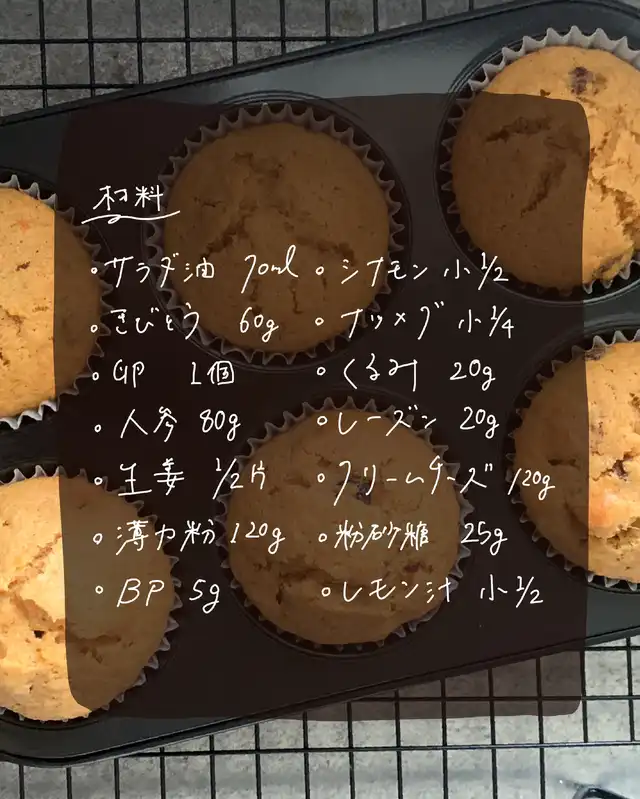 材料
・サラダ油 70ml
・きびとう 60g
・卵 1個
・人参 80g
・生姜 1/2片
・薄力粉 120g
・BP 5g
・シナモン 小1/2
・ナツメグ 小1/4
・くるみ 20g
・レーズン 20g
・クリームチーズ 120g
・粉砂糖 25g
・レモン汁 小1/2